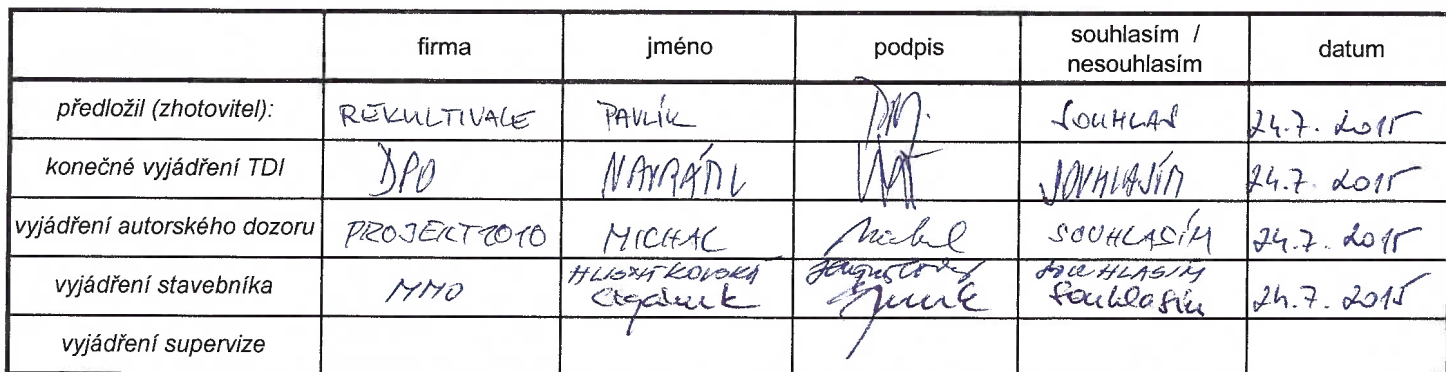 firma jméno podpis souhlasím / nesouhlasím datum
předložil (zhotovitel): REKULTIVACE PAVLÍK SOUHLAS 24.7. 2015
konečné vyjádření TDI DPO NAVRÁTIL SOUHLASÍM 24.7. 2015
vyjádření autorského dozoru PROJEKT2010 MICHAL SOUHLASÍM 24.7. 2015
vyjádření stavebníka MMO SOUHLASÍM
Souhlasím 24.7. 2015
vyjádření supervize